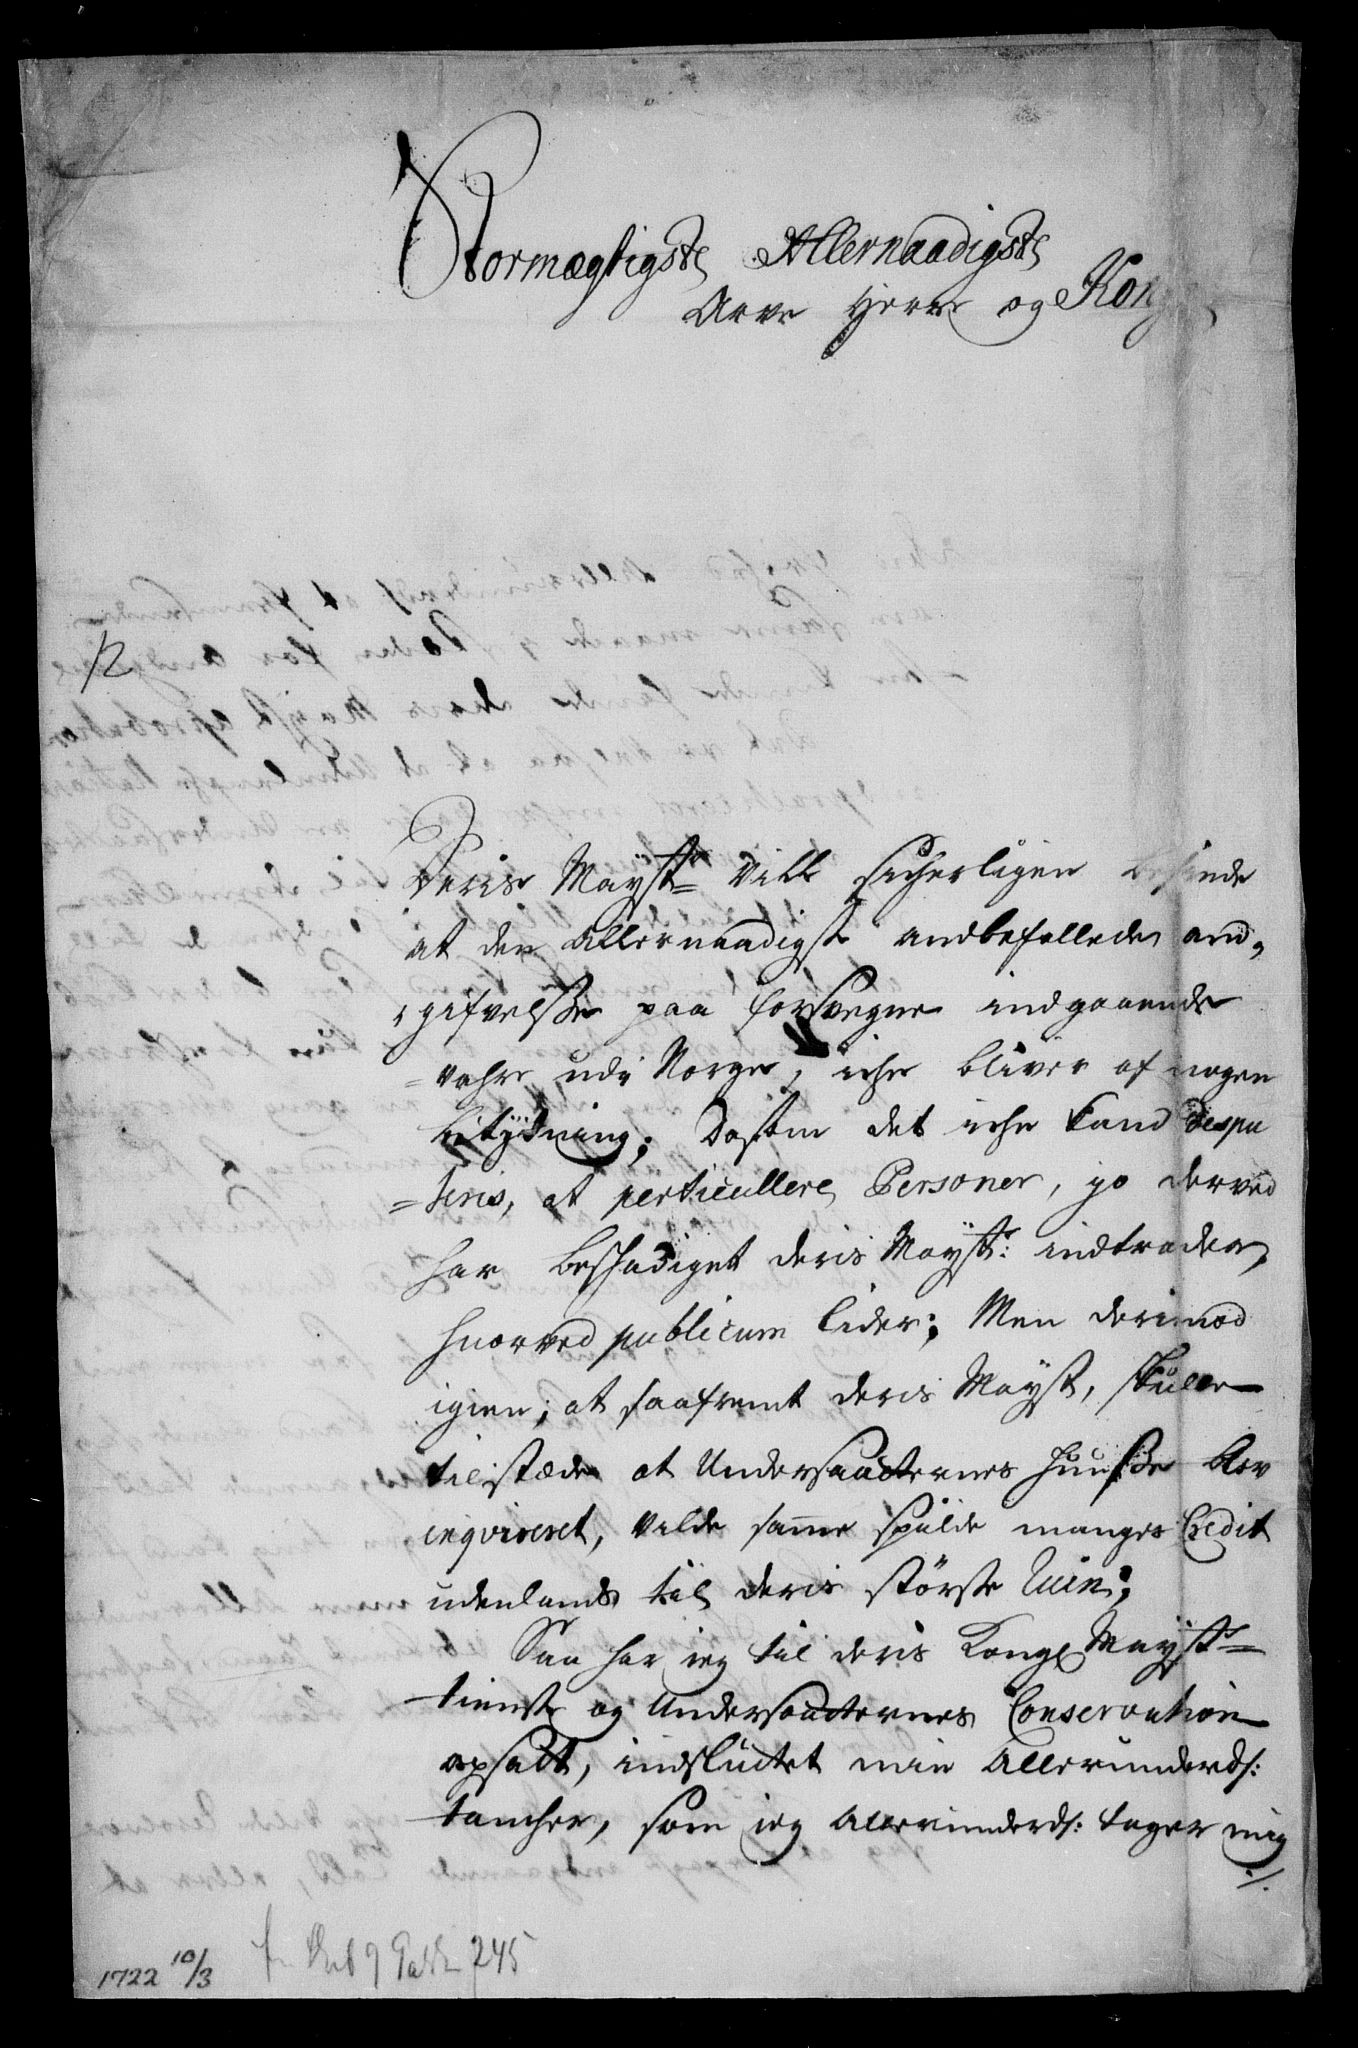 Stormægtigste Allernaadigste
Arve Herre og Konge
12
Deris Mayst: Vill sicherligen befinde
at den Allernaadigste andbefallede an„
„gifvelsse paa forsvegne indgaaende
vahre udi Norge, iche bliver af nogen
betydning; Dessten det iche kand dispu
=teris, at perticullere Personer, jo derved
har beschadiget deris Mayst: indtrader,
huorved publicum lider; Men derimod
igien, at saafremt deris Mayst, skulle
tilstæde at Undersaatternes huusse blev
inqvireret, vilde samme spilde manges Credit
udenlands til deris største Ruin;
Saa har ieg til deris Kongl Mayst:
tieniste og Undersaatternes Conservation
opsatt, indsluttet min Allerunderds:
tancher, som ieg Allerunderds: tager mig
./.
1722 10/3
245